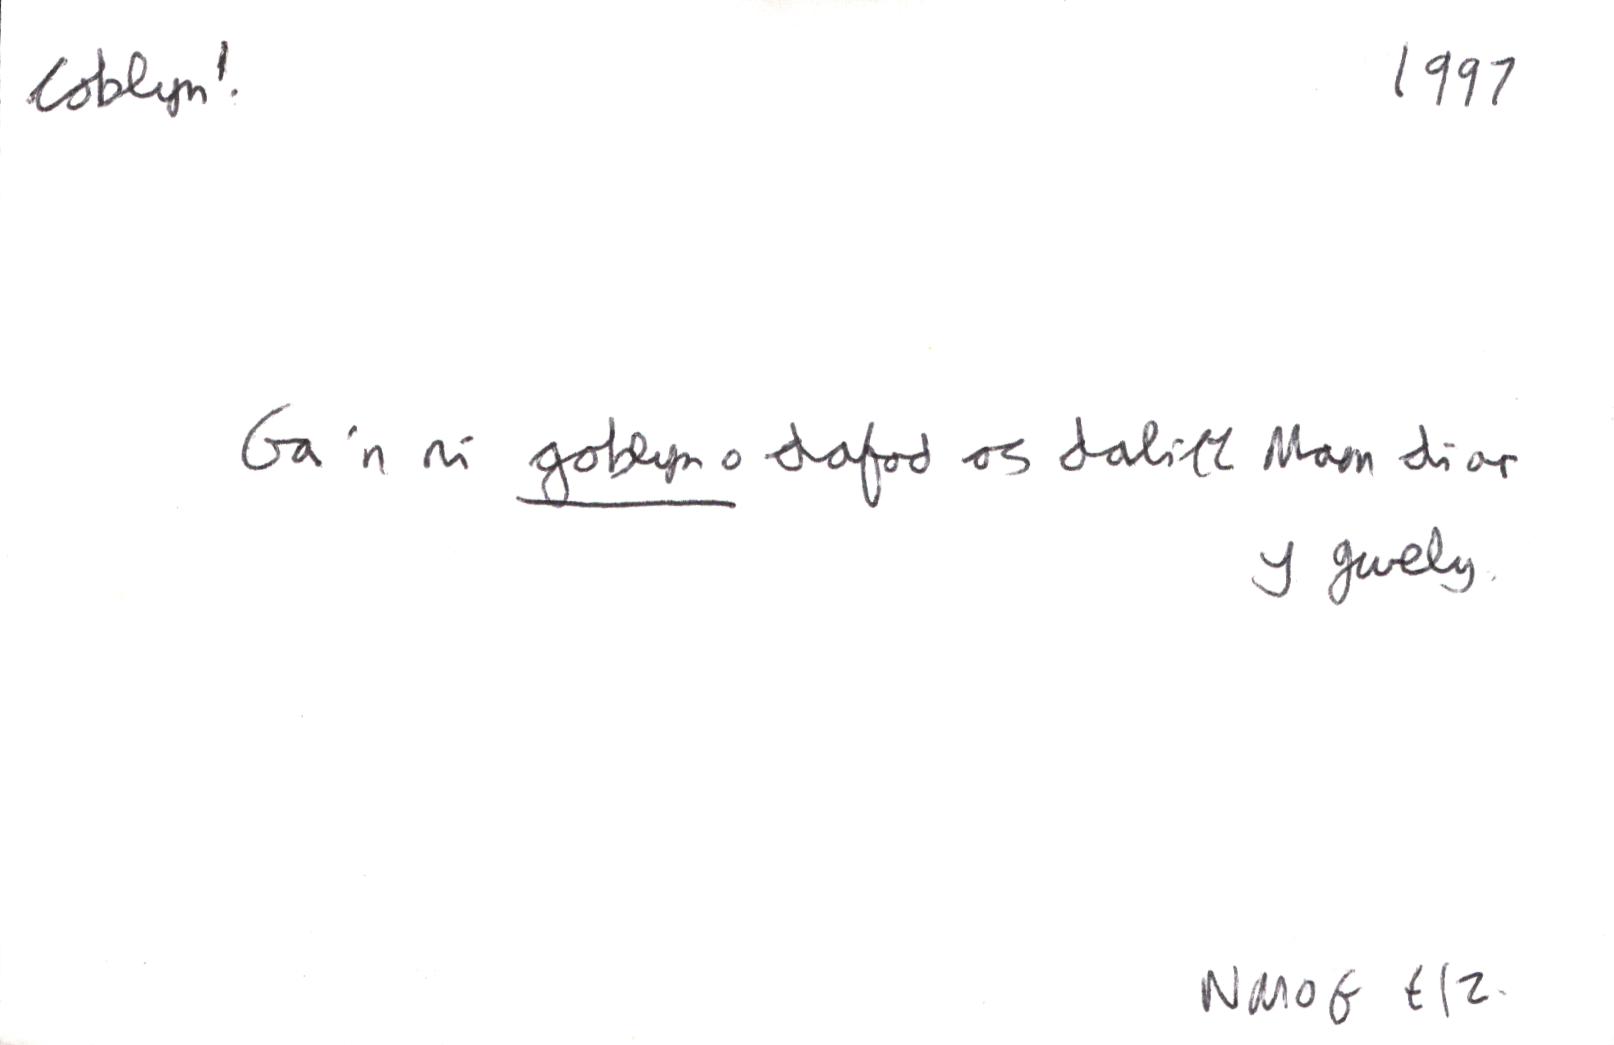 Coblyn! 1997
Ga'n ni goblyn o dafod os daliff Mam di ar
y gwely.
NMOG t12.